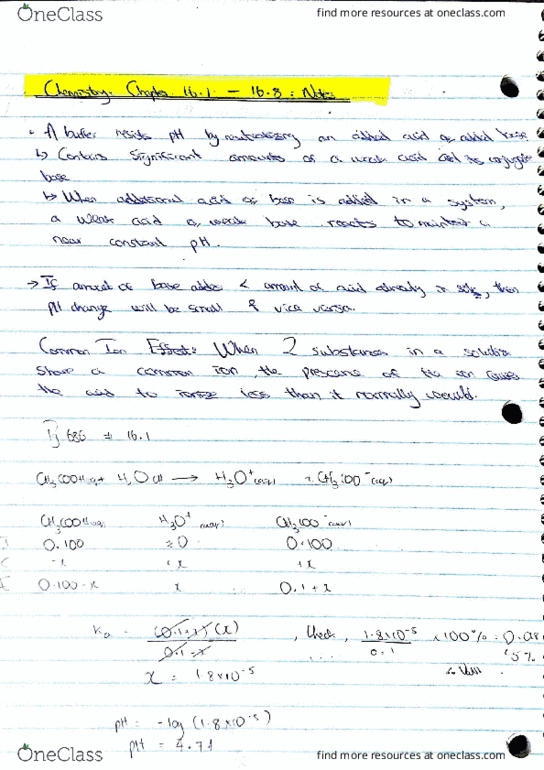 OneClass
find more resources at oneclass.com
Chemistry: Chapter 16.1 - 16.3: Notes
• A buffer resists pH by neutralizing an added acid or added base
↳ Contains significant amounts of a weak acid and its conjugate
base
↳ When additional acid or base is added in a system,
a weak acid or weak base reacts to maintain a
near constant pH.
→ If amount of base added < amount of acid already in, then
pH change will be small & vice versa.
Common Ion Effect: When 2 substances in a solution
share a common ion the of the ion causes
the acid to ionize less than it normally would.
Pg 686 # 16.1
CH3COOH(aq) + H2O(l) → H3O+(aq) + CH3COO-(aq)
CH3COOH(aq) H3O+(aq) CH3COO-(aq)
0.100 ≈0 0.100
-x +x +x
0.100-x x 0.1+x
Ka = (0.1+x)(x) / 0.1-x , Check, 1.8x10^-5 / 0.1 x100% = 0.018
<5%
x = 1.8x10^-5
pH = -log(1.8x10^-5)
pH = 4.74
OneClass
find more resources at oneclass.com